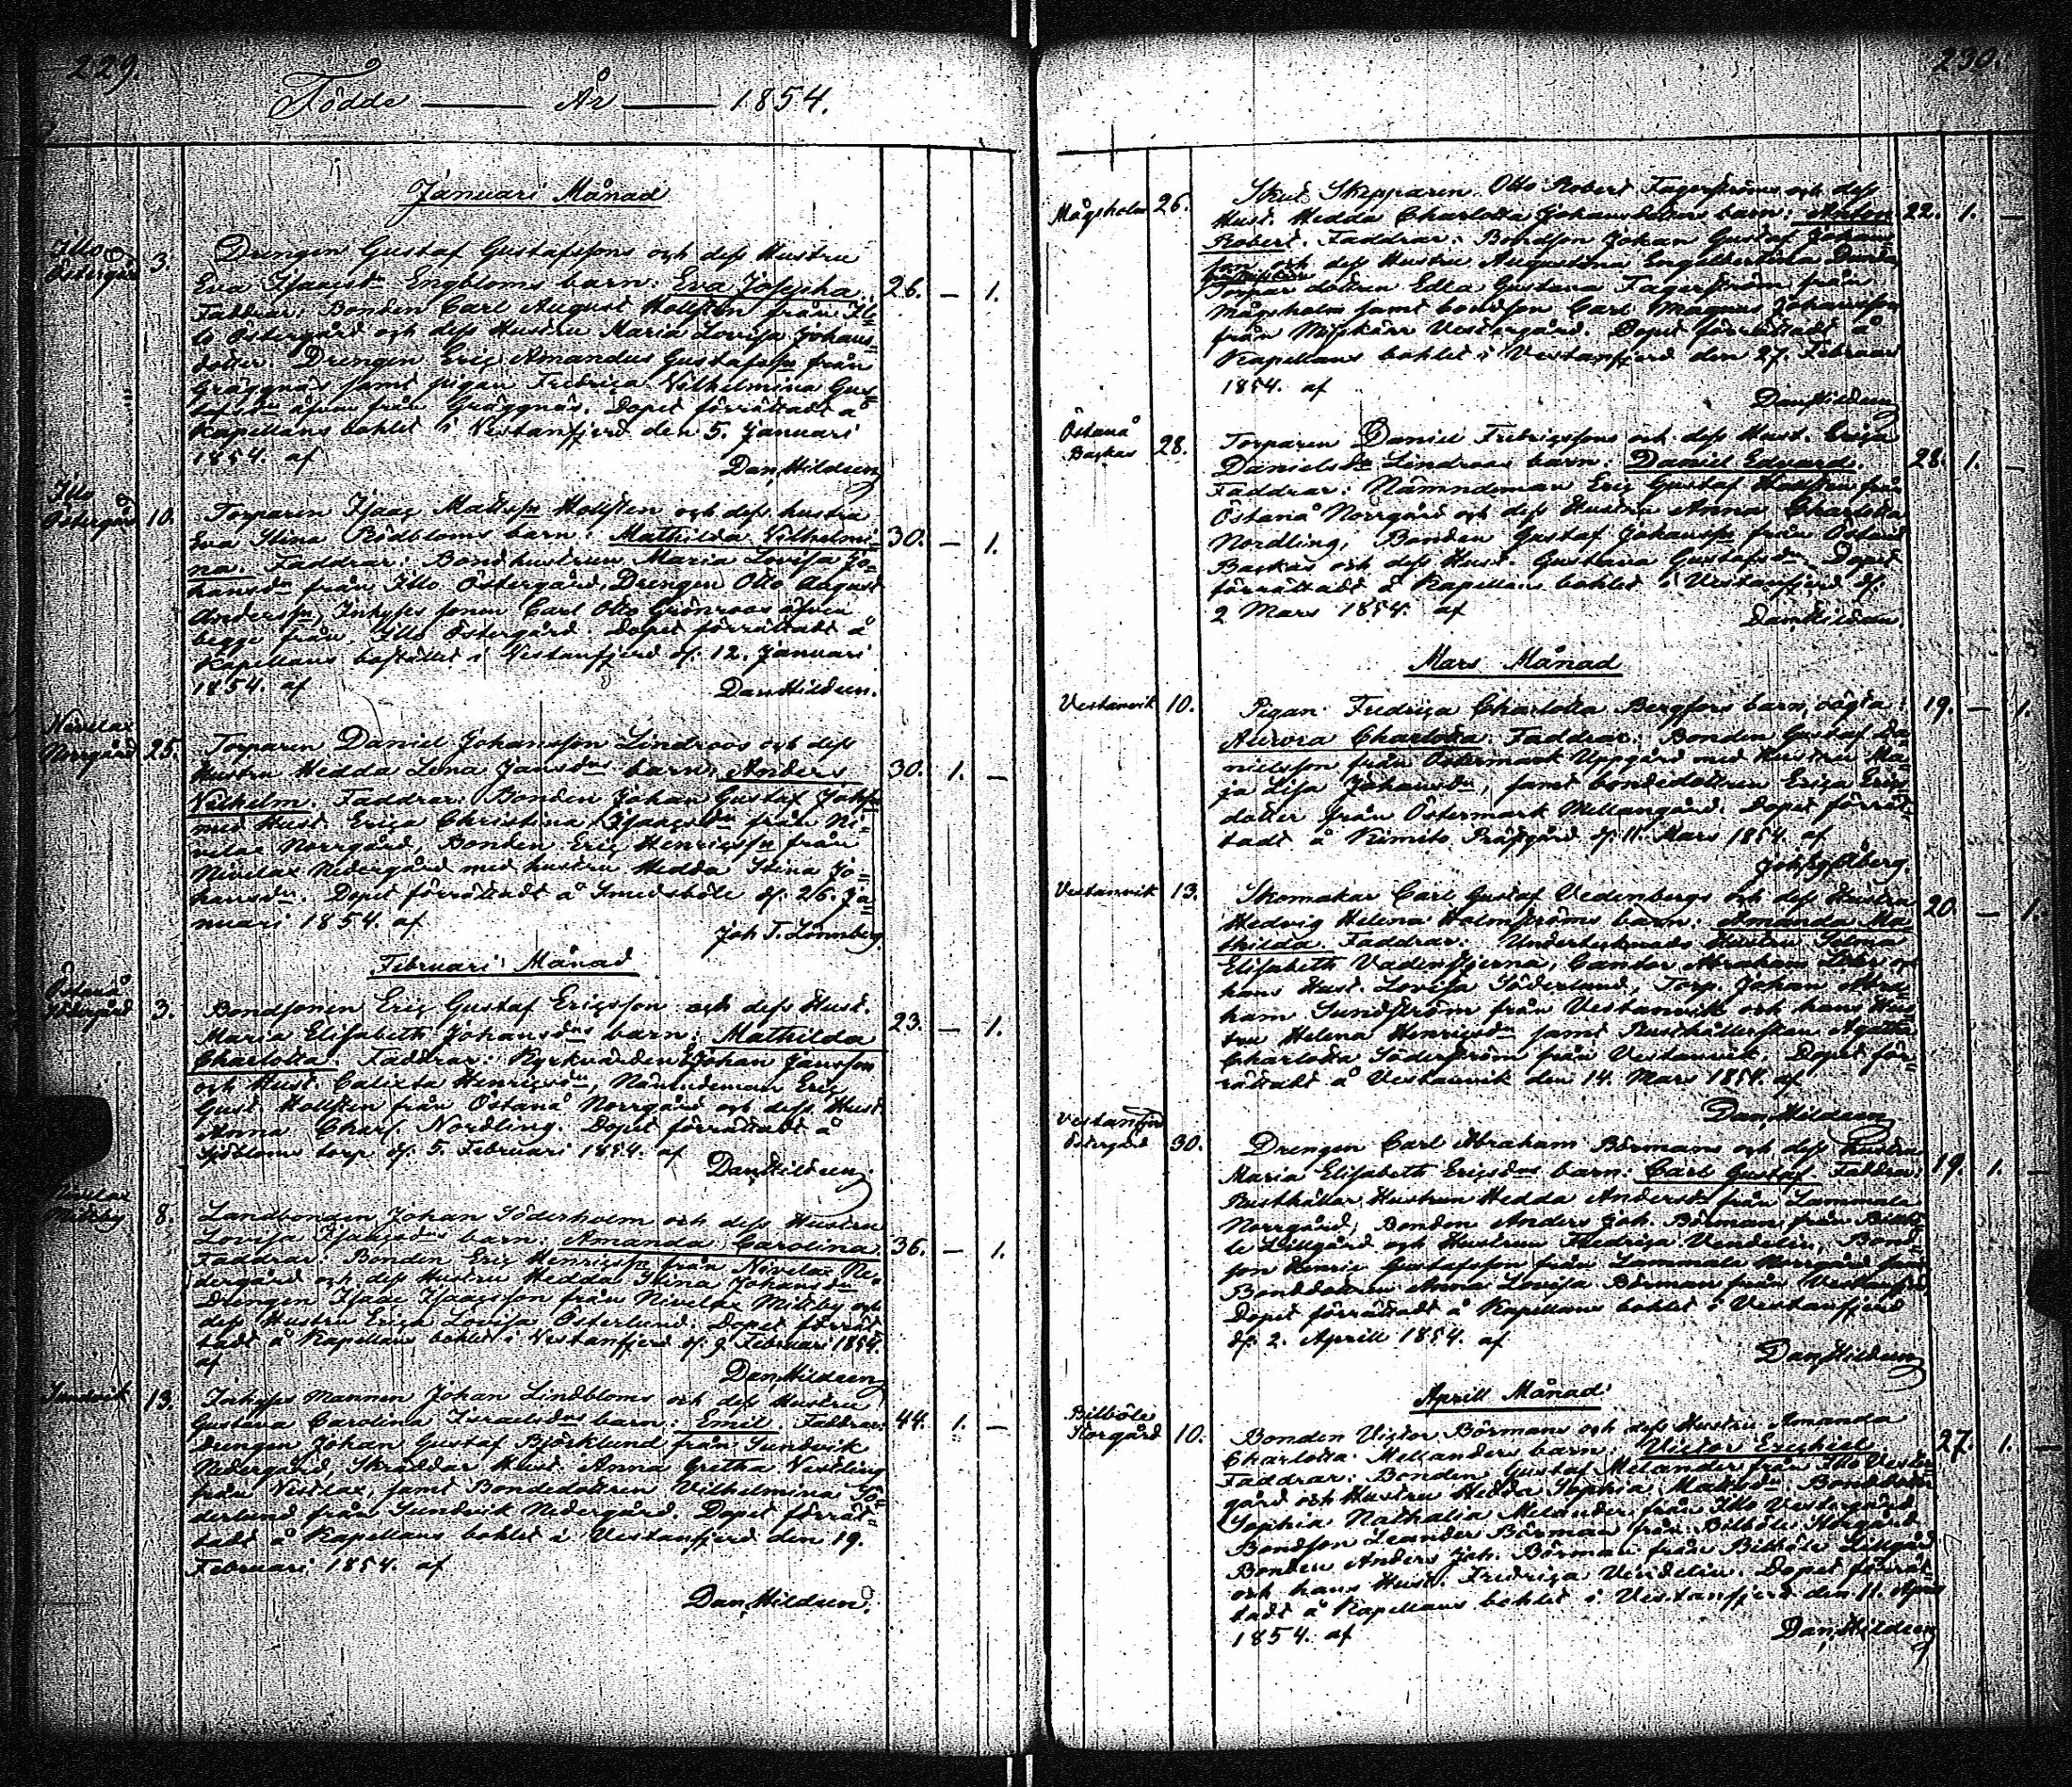 229.
Födde — År — 1854.
Januari Månad
Illo Östergård 3.
Drengen Gustaf Gustafssons och dess Hustru
Eva Isaacsdr Engbloms barn: Eva Josepha. 26. — 1.
Faddrar: Bonden Carl August Hollsten från Il-
lo Östergård och dess Hustru Maria Lovisa Johans-
dotter. Drengen Eric Amandus Gustafssn från
Gräggnäs samt pigan Fredrica Vilhelmina Gus-
tafsdr äfven från Gräggnäs. Dopet förrättadt å
Kapellans bohlet i Vestanfjerd den 5. Januari
1854. af
Dan, Hildeen
Illo Östergård 10.
Torparen Isaac Mattssn Hollsten och dess hustru
Eva Stina Rödbloms barn: Mathilda Vilhelmi- 30. — 1.
na. Faddrar: Bondhustrun Maria Lovisa Jo-
hansdr från Illo Östergård, Drengen Otto August
Anderssn, Inhyses sonen Carl Otto Grönroos äfven
begge från Illo Östergård. Dopet förrättadt å
Kapellans bostället i Vestanfjerd d. 12. Januari
1854. af
Dan, Hildeen.
Nivelax Norrgård 25.
Torparen Daniel Johansson Lindroos och dess
Hustru Hedda Lena Jansdrs barn: Anders 30. 1. —
Vilhelm. Faddrar: Bonden Johan Gustaf
med Hust. Erica Christina Isaacsdr från Ni-
velax Norrgård, Bonden Eric Henricssn från
Nivelax Nedergård med hustru Hedda Stina Jo-
hansdr. Dopet förrättadt å Smedsböle d. 26. Ja-
nuari 1854. af
Joh T. Lönnberg
Februari Månad
3.
Bondsonen Eric Gustaf Ericsson och dess Hust.
Maria Elisabeth Johansdrs barn: Mathilda 23. — 1.
Charlotta. Faddrar: Kyrkvärden Johan Jansson
och Hust. Calixta Henricsdr, Nämndeman Eric
Gust Hollsten från Östanå Norrgård och dess Hust.
Anna Charl Nordling. Dopet förrättadt å
Sjöbloms torp d. 5. Februari 1854. af
Dan, Hildeen
Nivelax Mittby 8.
Landbonden Johan Söderholm och dess Hustru
Lovisa Isaacsdrs barn: Amanda Carolina 36. — 1.
Faddrar: Bonden Eric Henricssn från Nivelax Ne-
dergård och dess Hustru Hedda Stina Johansdr
Drengen Isaac Isaacsson från Nivelax Mittby och
dess Hustru Erica Lovisa Österlund. Dopet förrät-
tadt å Kapellans bohlet i Vestanfjerd d. 9 Februari 1854.
af
Dan, Hildeen
Sundvik 13.
Inhyses mannen Johan Lindbloms och dess Hustru
Gustava Carolina Israelsdrs barn: Emil. Faddrar: 44. 1. —
Drengen Johan Gustaf Björklund från Sundvik
Nedergård, Skräddar Hust. Anna Gretha Nestling
från Nestlax, samt Bondedottren Vilhelmina Sö-
derlund från Sundvik Nedergård. Dopet förrät-
tadt å Kapellans bohlet i Vestanfjerd den 19.
Februari 1854. af
Dan, Hildeen.
230.
Mågsholm 26.
Skut Skepparen Otto Robert Fagerströms och dess
Hust. Hedda Charlotta Johansdotters barn: Anton 22. 1. —
Robert. Faddrar: Bondson Johan Gustaf Johans-
son och dess Hustru Augustina Engelbertina
Torpar dottren Edla Gustava Fagerström från
Mågsholm samt bondson Carl Magnus Johansson
från Misskärr Vestergård. Dopet förrättadt å
Kapellans bohlet i Vestanfjerd den 27. Februari
1854. af
Dan, Hildeen
Östanå Backas 28.
Torparen Daniel Fredricssons och dess Hust. Erica
Danielsdr Lindroos barn: Daniel Edvard. 28. 1. —
Faddrar: Nämndeman Eric Gustaf Hollsten från
Östanå Norrgård och dess Hustru Anna Charlotta
Nordling, Bonden Gustaf Johanssn från Östanå
Backas och dess Hust. Gustava Gustafsdr. Dopet
förrättadt å Kapellans bohlet i Vestanfjerd d.
2 Mars 1854. af
Dan, Hildeen
Mars Månad
Vestanvik 10.
Pigan Fredrica Charlotta Bergfors barn, oägta: 19. — 1.
Aurora Charlotta. Faddrar: Bonden Gustaf Da-
nielsson från Östermark Uppgård med Hustru Ma-
ja Lisa Johansdr, samt bondedottren Erica Erics-
dotter från Östermark Mellangård. Dopet förrät-
tadt å Kimito Prästgård d. 11. Mars 1854. af
Åberg.
Vestanvik 13.
Skomakar Carl Gustaf Vedenbergs och dess Hustru
Hedvig Helena Holmströms barn: Amanda Ma- 20. — 1.
thilda. Faddrar: Undertecknads Hustru Selma
Elisabeth Vadenstjerna, Cantor Abraham och
hans Hust. Lovisa Söderlund, Torp. Johan Abra-
ham Sundström från Vestanvik och hans Hus-
tru Helena Henricsdr samt Rusthållerskan Agatha
Charlotta Söderström från Vestanvik. Dopet för-
rättadt å Vestanvik den 14. Mars 1854. af
Dan, Hildeen
Vestanfjerd Östergård 30.
Drengen Carl Abraham Börmans och dess Hustru
Maria Elisabeth Ericsdrs barn: Carl Gustaf. Faddrar: 19. 1. —
Rusthållar Hustrun Hedda Andersdr från Lammala
Norrgård, Bonden Anders Joh. Börman från Bilbö-
le Lillgård och Hustrun Fredrica Vendelin, Bond-
son Henric Gustafsson från Lammala Norrgård samt
Bonddottren Anna Lovisa Börman från Vestanfjerd
Dopet förrättadt å Kapellans bohlet i Vestanfjerd
d. 2. Aprill 1854. af
Dan, Hildeen
Aprill Månad
Bilböle Storgård 10.
Bonden Victor Börmans och dess Hustru Amanda
Charlotta Mellanders barn: Victor Esechiel. 27. 1. —
Faddrar: Bonden Gustaf Melander från Illo Vester-
gård och Hustru Hedda Sophia Mattsdr. Bonddotter
Sophia Nathalia Melander från Illo Vestergård
Bondson Leander Börman från Bilböle Storgård
Bonden Anders Joh. Börman från Bilböle Lillgård
och hans Hust. Fredrica Vendelin. Dopet förrät-
tadt å Kapellans bohlet i Vestanfjerd den 11. April
1854. af
Dan, Hildeen